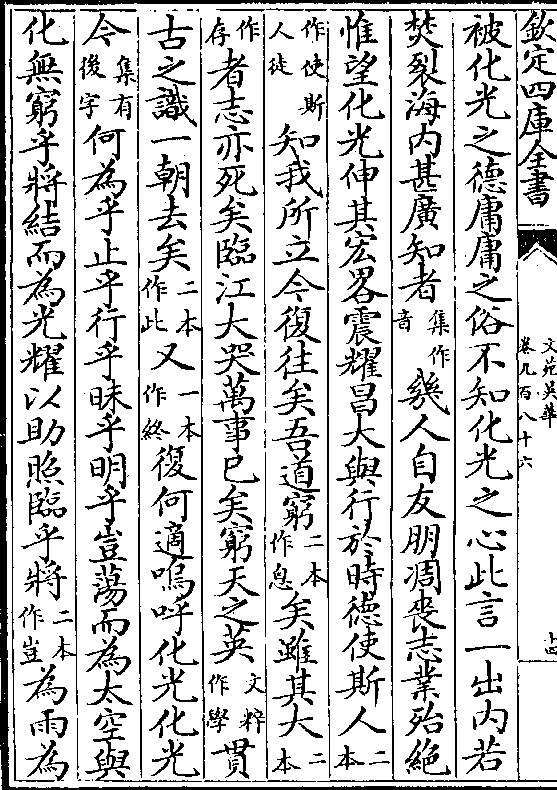 欽定四庫全書
文苑英華
卷九百八十六
十四
被化光之德庸庸之俗不知化光之心此言一出内若
焚裂海内甚廣知者集作音幾人自友朋凋喪志業殆絶
惟望化光伸其宏畧震耀昌大與行於時德使斯人二本
作使斯人徒知我所立今復往矣吾道窮二本作息矣雖其大二本
作存者志亦死矣臨江大哭萬事已矣窮天之英文粹作學貫
古之識一朝去矣二本作此又一本作終復何適嗚呼化光化光
今集有後字何為乎止乎行乎昧乎明乎豈蕩而為太空與
化無窮乎將結而為光耀以助照臨乎將二本作豈為雨為